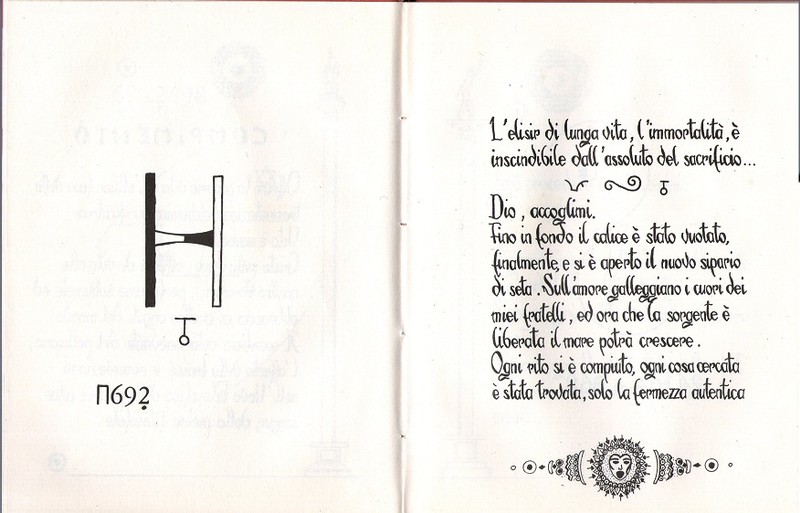 Π692
L'elisir di lunga vita, l'immortalità, è
inscindibile dall'assoluto del sacrificio...
Dio, accoglimi.
Fino in fondo il calice è stato vuotato,
finalmente, e si è aperto il nuovo sipario
di seta. Sull'amore galleggiano i cuori dei
miei fratelli, ed ora che la sorgente è
liberata il mare potrà crescere.
Ogni rito si è compiuto, ogni cosa cercata
è stata trovata, solo la fermezza autentica